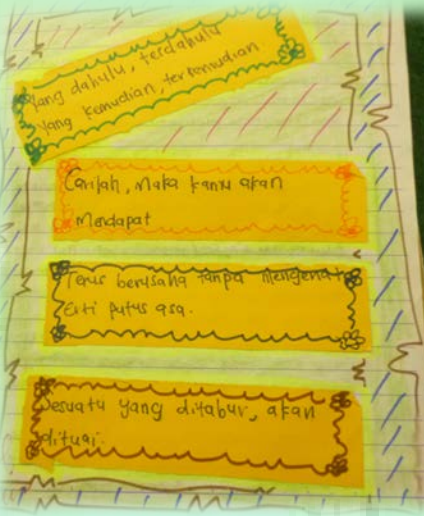 Yang dahulu, terdahulu
Yang kemudian, terkemudian.
Carilah, Maka kamu akan
Mendapat
Terus berusaha tanpa mengenal
Erti putus asa.
Sesuatu yang ditabur, akan
dituai.